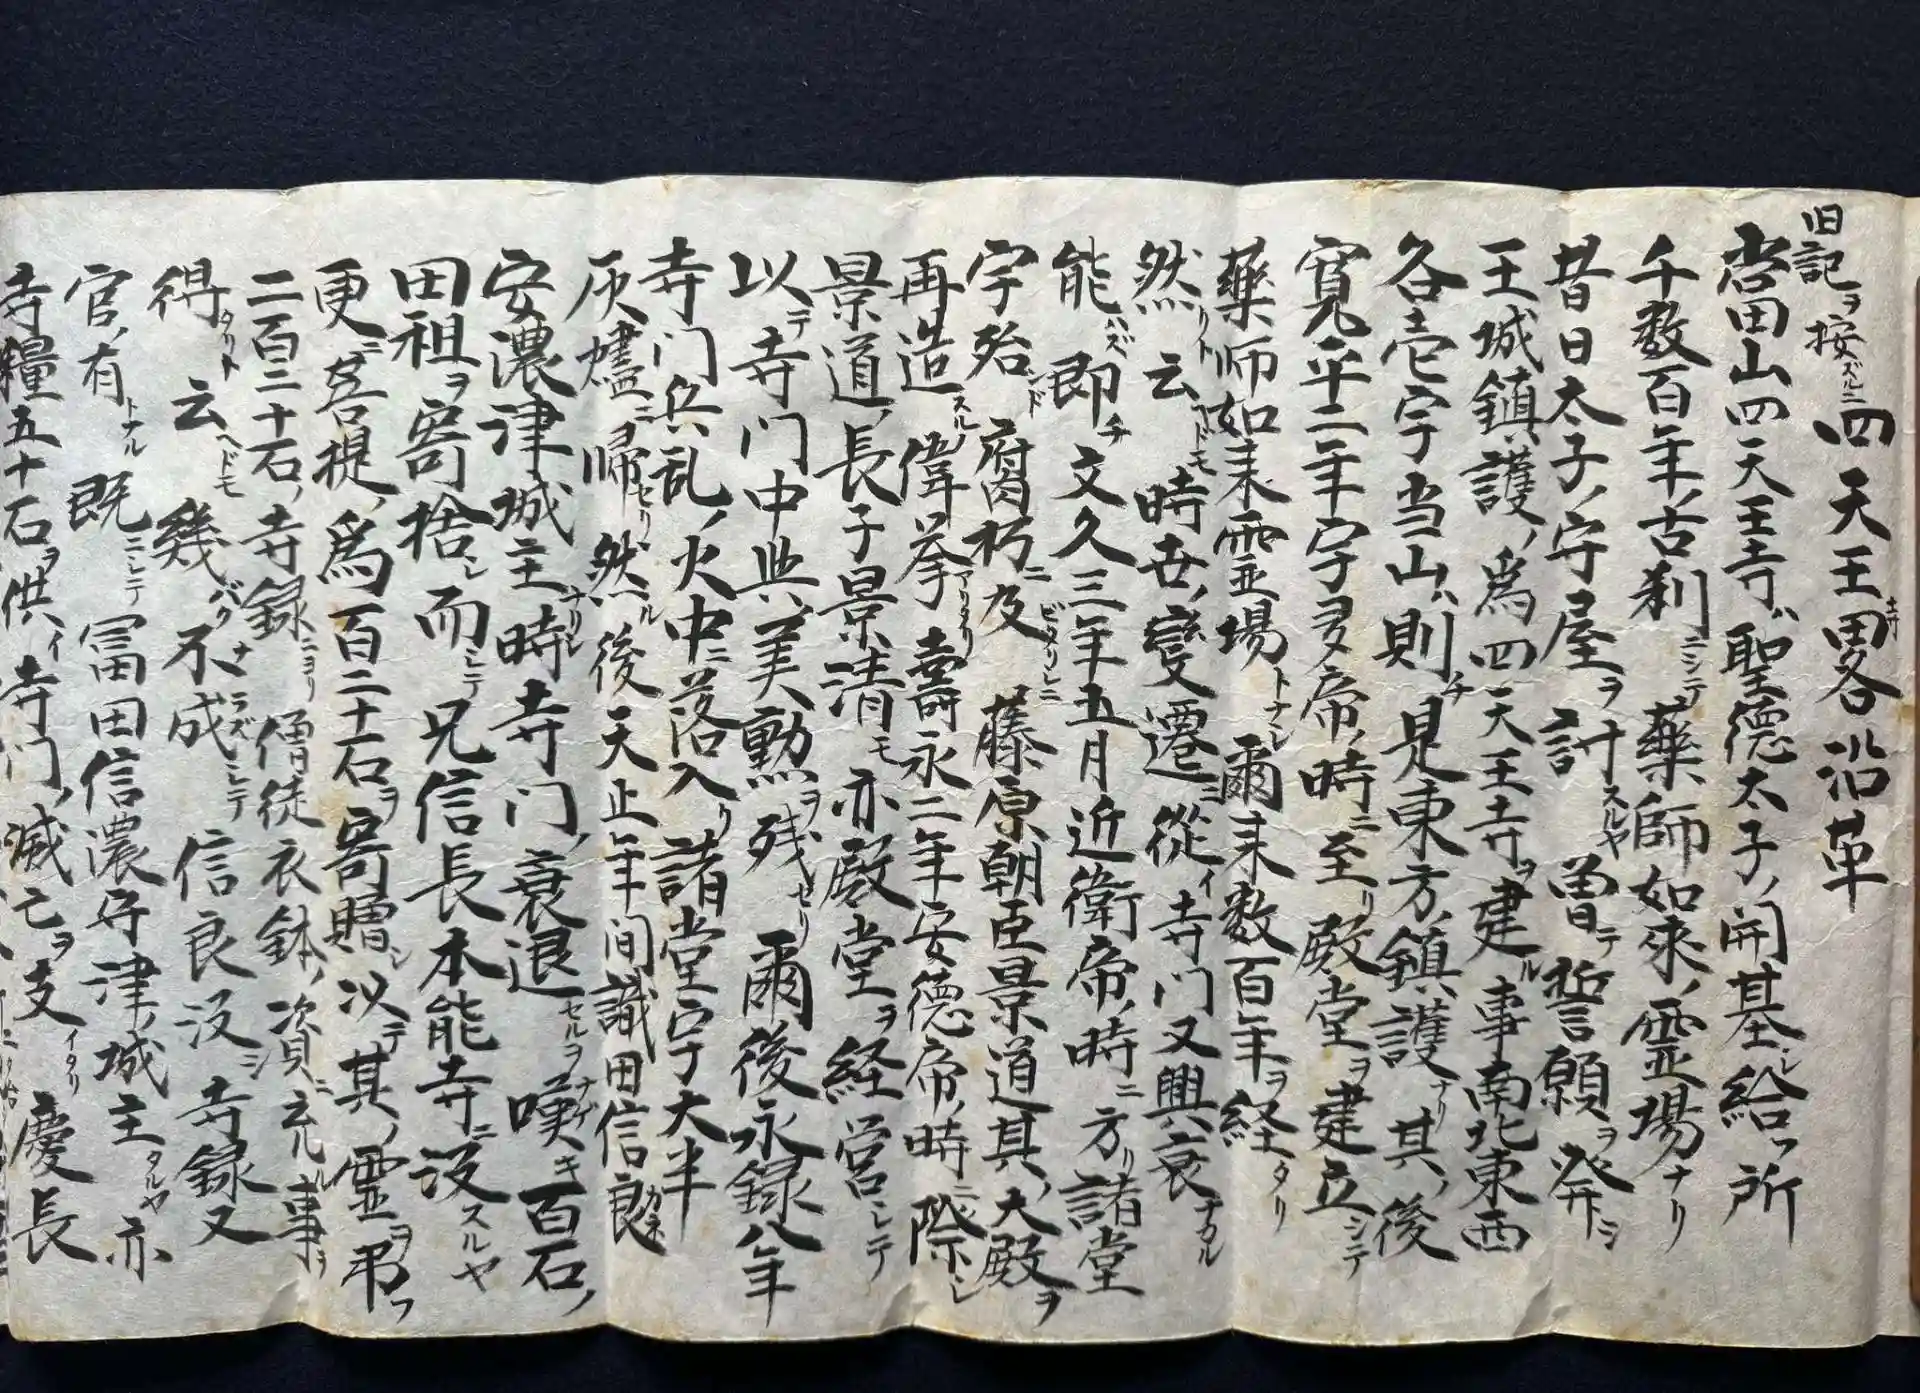 旧記ヲ按ズルニ
四天王寺畧沿革
当田山四天王寺ハ聖德太子ノ開基シ給フ所
千数百年ノ古刹ニシテ藥師如來ノ霊場ナリ
昔日太子ノ守屋ヲ討スルヤ曽テ誓願ヲ発シ
王城鎮護ノ為四天王寺ヲ建ル事南北東西
各壱宇当山ハ則チ是東方ノ鎮護ナリ其ノ後
寛平二年宇多帝ノ時ニ至リ殿堂ヲ建立シテ
藥师如来霊場トナシ爾来数百年ヲ経タリ
然リト云ヘドモ時世ノ變遷ニ從イ寺门又興衰ナカル
能ハズ即チ文久三年五月近衛帝ノ時ニ方リ諸堂
宇殆ンド腐朽ニ及ビタリシニ藤原朝臣景道其ノ大殿ヲ
再造スルノ偉挙アリタリ壽永二年安德帝ノ時ニ際シ
景道ノ長子景清モ亦殿堂ヲ経営シテ
以テ寺门中興ノ美勲ヲ残セリ爾後永録八年
寺门兵乱ノ火中ニ落入リ諸堂宇大半
灰燼ニ帰セリ然ルニ後天正年间識田信良カネ
安濃津城主ナリシ時寺门ノ衰退セルヲナゲ嘆キ百石ノ
田祖ヲ寄捨シ而シテ兄信長本能寺ニ没スルヤ
更ニ菩提ノ為百二十石ヲ寄贈シ以テ其ノ霊ヲ弔フ
二百二十石ノ寺録ニヨリ僧徒衣鉢ノ資ニ充ル事ヲ
得タリト云ヘドモ幾バクナラズシテ不成信良没シ寺録又
官ノ有トナル既ニシテ冨田信濃守津ノ城主タルヤ亦
寺糧五十石ヲ供イ寺门ノ滅亡ヲ支イタリ慶長